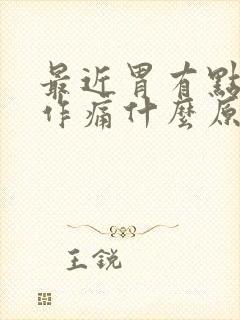 最近胃有點
作痛什麼原
王銳